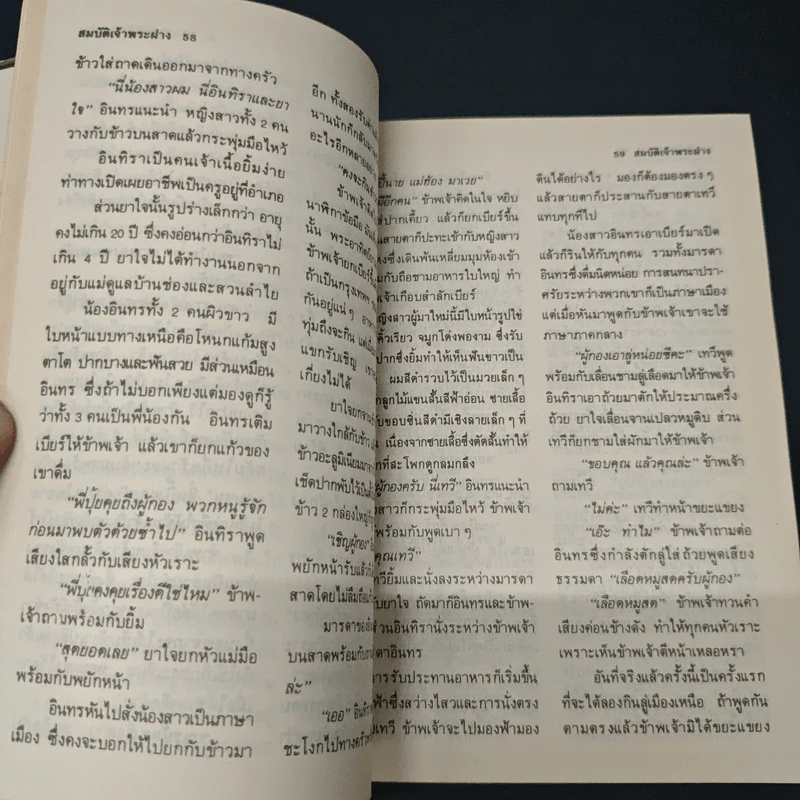 สมบัติเจ้าพระฝาง 58
ข้าวใส่ถาดเดินออกมาจากทางครัว
“นี่น้องสาวผม นี่อินทิราและยา
ใจ” อินทรแนะนำ หญิงสาวทั้ง 2 คน
วางกับข้าวบนสาดแล้วกระพุ่มมือไหว้
อินทิราเป็นคนเจ้าเนื้อยิ้มง่าย
ท่าทางเปิดเผยอาชีพเป็นครูอยู่ที่อำเภอ
ส่วนยาใจนั้นรูปร่างเล็กกว่า อายุ
คงไม่เกิน 20 ปี ซึ่งคงอ่อนกว่าอินทิราไม่
เกิน 4 ปี ยาใจไม่ได้ทำงานนอกจาก
อยู่กับแม่ดูแลบ้านช่องและสวนลำไย
น้องอินทรทั้ง 2 คนผิวขาว มี
ใบหน้าแบบทางเหนือคือโหนกแก้มสูง
ตาโต ปากบางและฟันสวย มีส่วนเหมือน
อินทร ซึ่งถ้าไม่บอกเพียงแต่มองดูก็รู้
ว่าทั้ง 3 คนเป็นพี่น้องกัน อินทรเติม
เบียร์ให้ข้าพเจ้า แล้วเขาก็ยกแก้วของ
เขาดื่ม
“พี่ปุ้ยคุยถึงผู้กอง พวกหนูรู้จัก
ก่อนมาพบตัวด้วยซ้ำไป” อินทิราพูด
เสียงใสกลั้วกับเสียงหัวเราะ
“พี่ปุ้ยคงคุยเรื่องดีใช่ไหม” ข้าพ-
เจ้าถามพร้อมกับยิ้ม
“สุดยอดเลย” ยาใจยกหัวแม่มือ
พร้อมกับพยักหน้า
อินทรหันไปสั่งน้องสาวเป็นภาษา
เมือง ซึ่งคงจะบอกให้ไปยกกับข้าวมา
อีก ทั้งสองรับคำ
นานนักก็กลับมา
อะไรอีกหลายอย่าง
“คงจะกิน
ข้าพเจ้า
นาฬิกาข้อมือ
นั้น พระอาทิตย์
ข้าพเจ้ายกเบียร์ขึ้น
ถ้าเป็นกรุงเทพ
กันอยู่แน่ๆ อาหาร
ทุ่มถึงจะกิน แต่เมื่อ
แขกรับเชิญ เรา
เกี่ยงไม่ได้
ยาใจยก
มาวางใกล้กับข้าว
ข้าวอะลูมิเนียม
เช็ดปากพับไว้เป็น
ข้าว 2 กล่องใหญ่
“เชิญผู้กอง”
พยักหน้ารับแล้วก็
สาดโดยไม่ลืมถือ
มารดาของอิน
บนสาดพร้อมกับ
ล่ะ”
“เออ” อินทร
ชะโงกไปทางครัว
59 สมบัติเจ้าพระฝาง
ปี้นาย แม่ฮ้อง มาเวย”
มีอีกคน” ข้าพเจ้าคิดในใจ หยิบ
ส่ปากเคี้ยว แล้วก็ยกเบียร์ขึ้น
สายตาก็ปะทะเข้ากับหญิงสาว
คงซึ่งเดินพ้นเหลี่ยมมุมห้องเข้า
มกับถือชามอาหารใบใหญ่ ทำ
จ้าเกือบสำลักเบียร์
ญิงสาวผู้มาใหม่นี้มีใบหน้ารูปไข่
คิ้วเรียว จมูกโด่งพองาม ซึ่งรับ
ปากซึ่งยิ้มทำให้เห็นฟันขาวเป็น
ผมสีดำรวบไว้เป็นมวยเล็ก ๆ
กลูกไม้แขนสั้นสีฟ้าอ่อน ชายเสื้อ
บขอบซิ่นสีดำมีเชิงลายเล็ก ๆ ที่
เนื่องจากชายเสื้อซึ่งตัดสั้นทำให้
กที่สะโพกดูกลมกลึง
ผู้กองครับ นี่เทวี” อินทรแนะนำ
สาวก็กระพุ่มมือไหว้ ข้าพเจ้า
พร้อมกับพูดเบา ๆ
คุณเทวี”
ทวียิ้มและนั่งลงระหว่างมารดา
บยาใจ ถัดมาก็อินทรและข้าพ-
ส่วนอินทิรานั่งระหว่างข้าพเจ้า
ดาอินทร
การรับประทานอาหารก็เริ่มขึ้น
ฟ้าซึ่งสว่างไสวและการนั่งตรง
งเทวี ข้าพเจ้าจะไปมองฟ้ามอง
ดินได้อย่างไร มองก็ต้องมองตรง ๆ
แล้วสายตาก็ประสานกับสายตาเทวี
แทบทุกที่ไป
น้องสาวอินทรเอาเบียร์มาเปิด
แล้วก็รินให้กับทุกคน รวมทั้งมารดา
อินทรซึ่งดื่มนิดหน่อย การสนทนาปรา-
ศรัยระหว่างพวกเขาก็เป็นภาษาเมือง
แต่เมื่อหันมาพูดกับข้าพเจ้าเขาจะใช้
ภาษาภาคกลาง
“ผู้กองเอาลู่หน่อยซีคะ” เทวีพูด
พร้อมกับเลื่อนชามลู่เลือดมาให้ข้าพเจ้า
อินทิราเอาถ้วยมาตักให้ประมาณครึ่ง
ถ้วย ยาใจเลื่อนจานเปลวหมูดิบ ส่วน
เทวีก็ยกชามใส่ผักมาให้ข้าพเจ้า
“ขอบคุณ แล้วคุณล่ะ” ข้าพเจ้า
ถามเทวี
“ไม่ค่ะ” เทวีทำหน้าขยะแขยง
“เอ๊ะ ทำไม” ข้าพเจ้าถามต่อ
อินทรซึ่งกำลังตักลู่ใส่ถ้วยพูดเสียง
ธรรมดา “เลือดหมูสดครับผู้กอง”
“เลือดหมูสด” ข้าพเจ้าทวนคำ
เสียงค่อนข้างดัง ทำให้ทุกคนหัวเราะ
เพราะเห็นข้าพเจ้าตีหน้าเหลอหรา
อันที่จริงแล้วครั้งนี้เป็นครั้งแรก
ที่จะได้ลองกินลู่เมืองเหนือ ถ้าพูดกัน
ตามตรงแล้วข้าพเจ้ามิได้ขยะแขยง